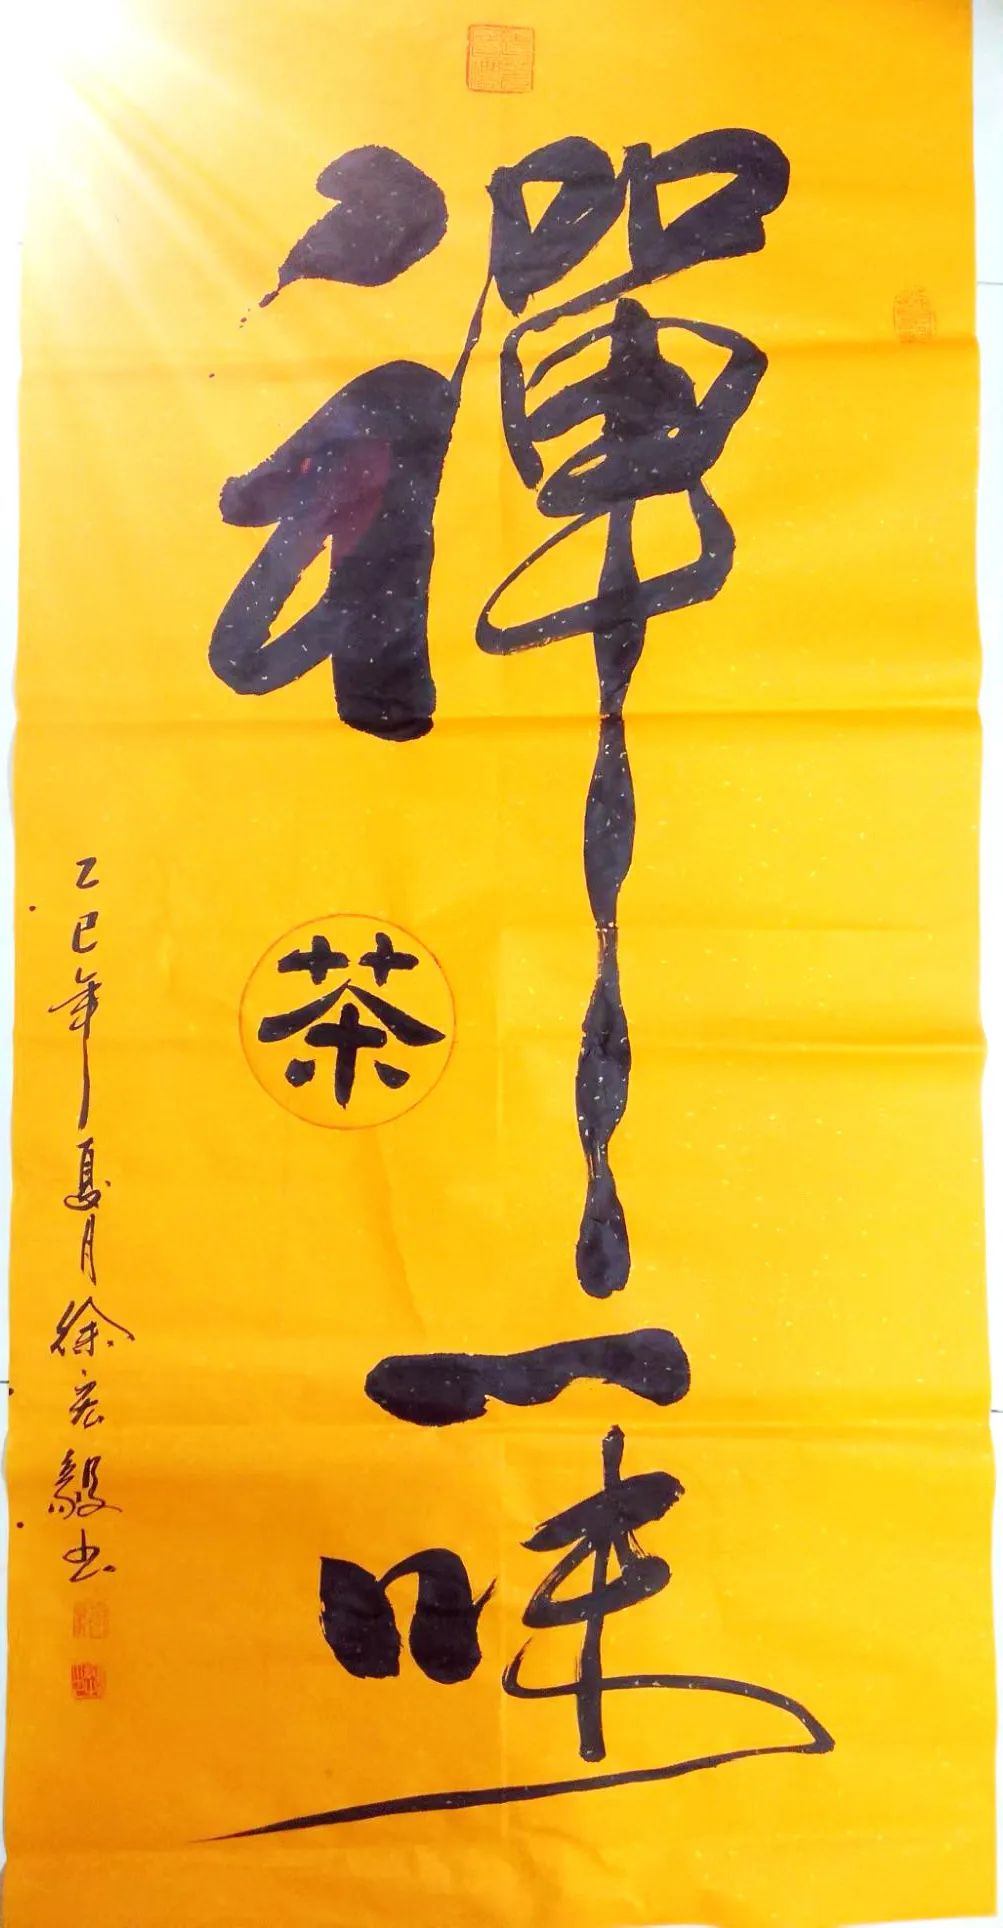 禪一味
茶
乙巳年夏月徐宏毅书